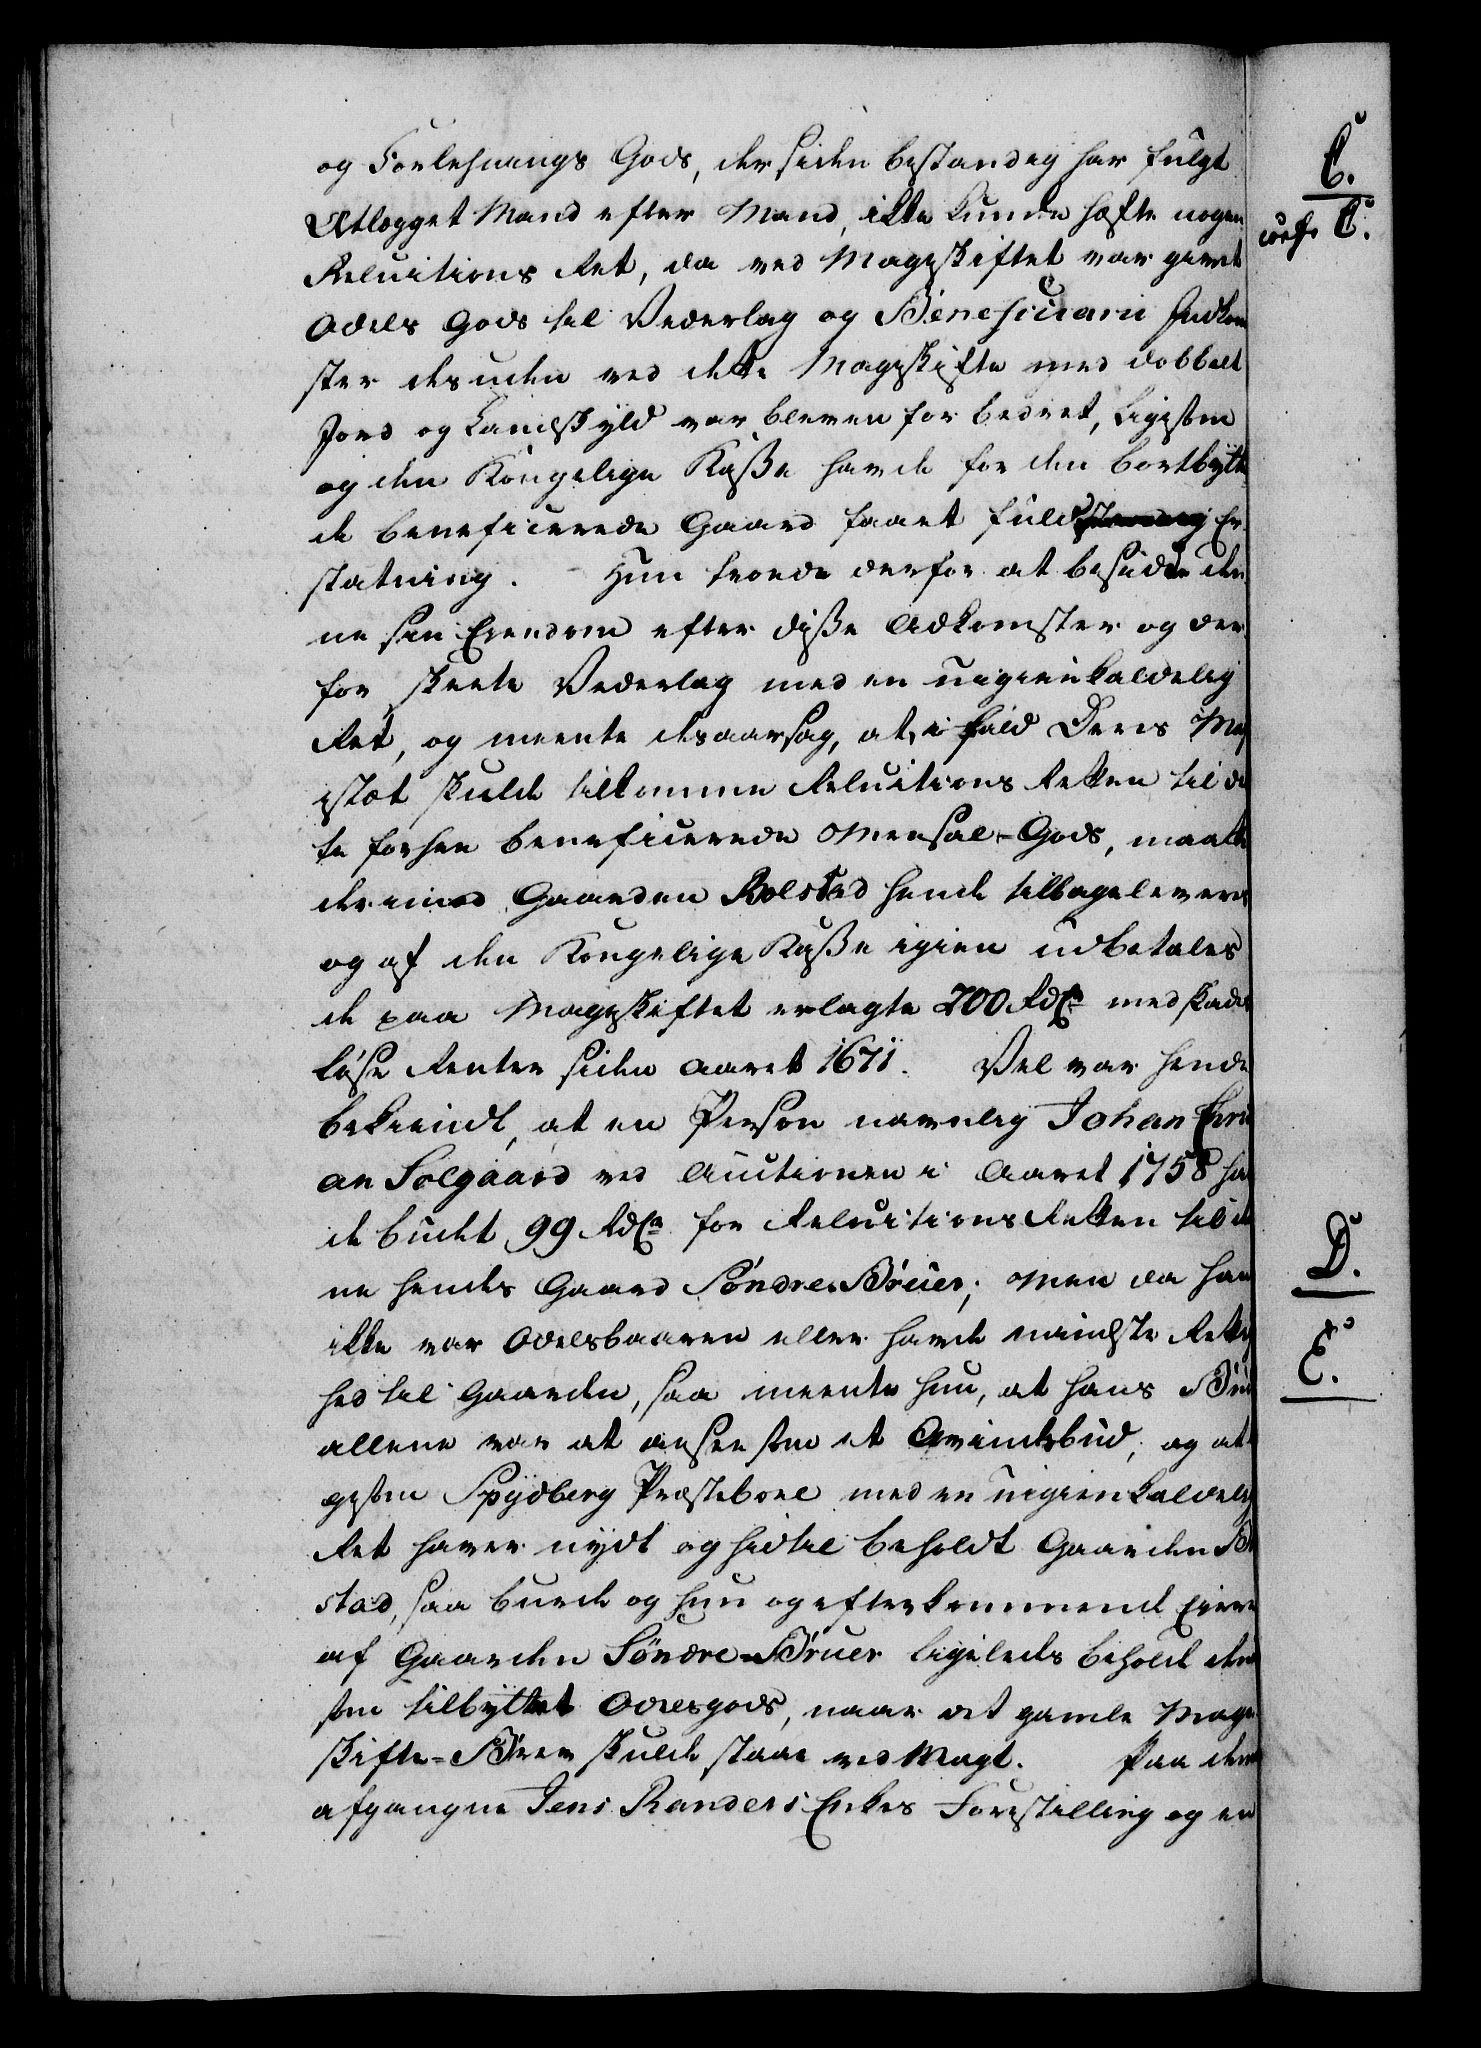 og Forlehnings Gods, der siden bestandig har fulgt
Utlegget Mand efter Mand, ikke kunde hæfte nogen
Reluitions Ret, da ved Mageskiftet var givet
Odels Gods til Vederlag og Beneficiarii Indkom
ster desuden ved dette Mageskifte med dobbelt
Jord og Landskyld var bleven forbedret, ligesom
og den Kongelige Kasse havde for den bortbytte
de beneficerede Gaard faaet fuld Er
statning. Hun troede derfor at besidde den
ne sin Eiendom efter disse Adkomster og der
for skeete Vederlag med en uigienkaldelig
Ret, og meente desaarsag, at, i fald Deres Maj
estæt skulde tilkomme Reluitions Retten til de
te forhen beneficerede Mensal-Gods, maatte
derimod Gaarden Bolstad hende tilbageleveres
og af den Kongelige Kasse igien udbetales
de paa Mageskiftet erlagte 200 Rdr med skades
løse Renter siden Aaret 1671. Vel var hende
bekiendt, at en Person navnlig Johan Chri
an Solgaard ved Auctionen i Aaret 1758 hav
de budt 99 Rdr for Reluitions Retten til den
ne hendes Gaard Söndre Bruer; Men da han
ikke var Odelsbaaren eller havde mindste Rettig
hed til Gaarden, saa meente hun, at hans Bud
allene var at ansee som et Avindsbud; og at li
gesom Spydberg Præstebole med en uigienkaldelig
Ret haver nydt og hidtil beholdt Gaarden Bol
stad, saa burde og hun og efterkommende Eiere
af Gaarden Söndre-Bruer ligeledes beholde den
som tilbyttet Odelsgods, naar det gamle Mage
skifte-Brev skulde staae ved Magt. Paa den
afgangne Jens Randers Enkes Forestilling og en
C.
conf. C.
D.
E.